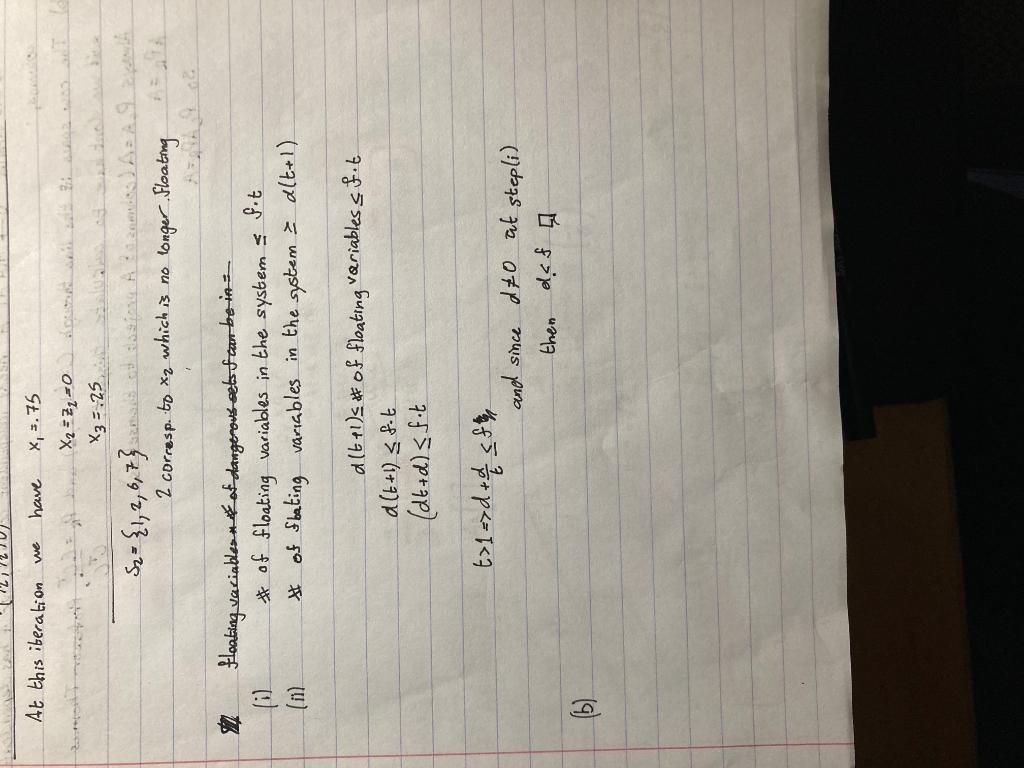 At this iteration we have x₁ = .75
x₂ = z₂ = 0
x₃ = .25
S₂ = {1, 2, 6, 7}
2 corresp. to x₂ which is no longer floating
floating variables * # of dangerous sets f can be in =
(i) # of floating variables in the system ≤ f·t
(ii) # of floating variables in the system ≥ d(t+1)
d(t+1) ≤ # of floating variables ≤ f·t
d(t+1) ≤ f·t
(dt+d) ≤ f·t
t>1 => d + d/t ≤ f
and since d≠0 at step (i)
then d<f □
(b)